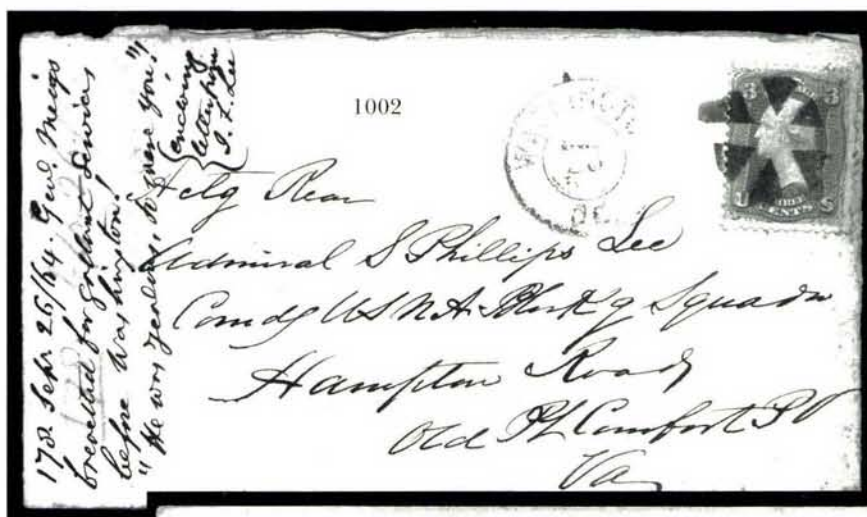 178. Sept. 26/64. Genl. Meigs
brevetted for gallant services
before Washington!
"He was zealous, to serve you."
{enclosing
letter from
S. P. Lee
1002
WASHINGTON
3 3
U S
THREE
CENTS
Actg Rear
Admiral S Phillips Lee
Comdg USNA Blockg Squadn
Hampton Roads
Old Pt Comfort P O
Va